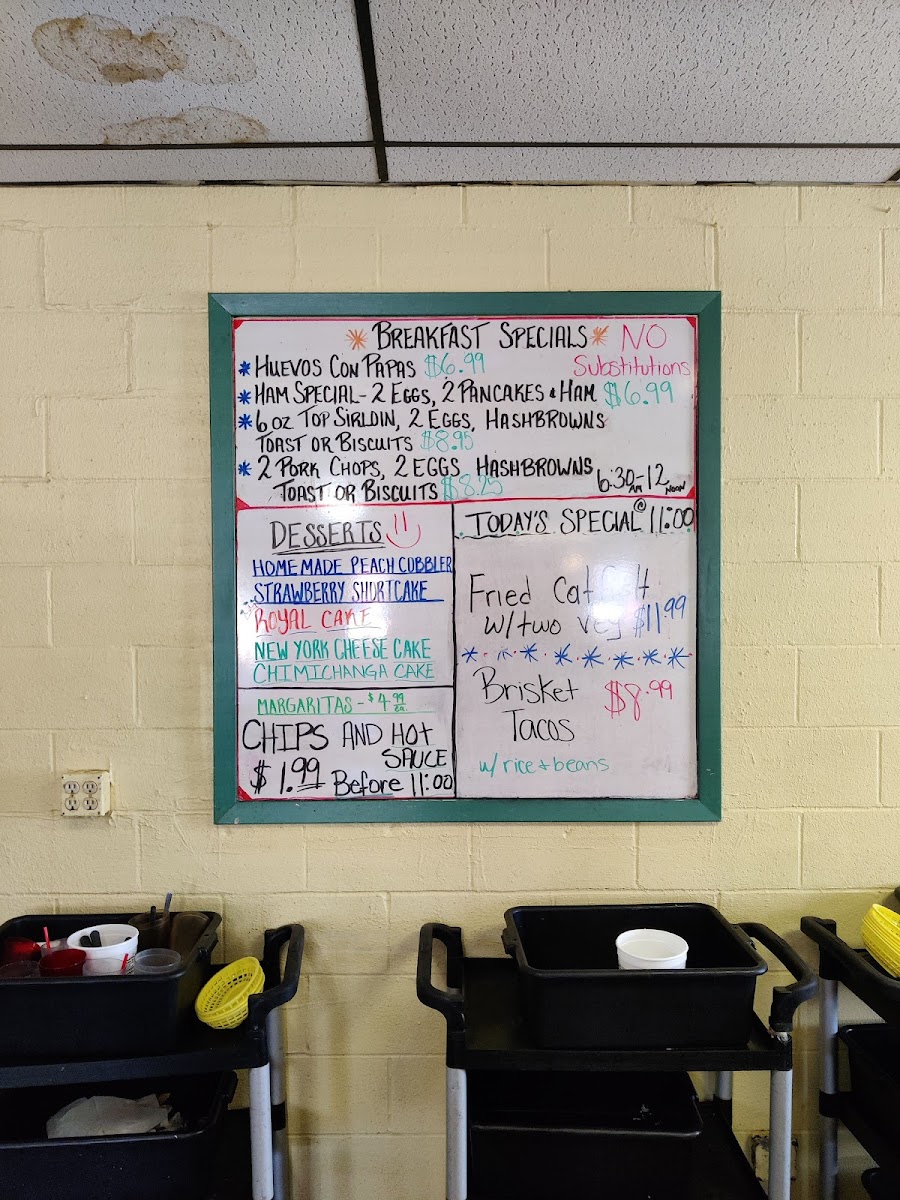 BREAKFAST SPECIALS NO
Substitutions
HUEVOS CON PAPAS $6.99
HAM SPECIAL - 2 EGGS, 2 PANCAKES & HAM $6.99
6 OZ TOP SIRLOIN, 2 EGGS, HASHBROWNS
TOAST OR BISCUITS $8.95
2 PORK CHOPS, 2 EGGS, HASHBROWNS
TOAST OR BISCUITS $8.25
6:30 AM - 12 NOON
DESSERTS
HOMEMADE PEACH COBBLER
STRAWBERRY SHORTCAKE
ROYAL CAKE
NEW YORK CHEESE CAKE
CHIMICHANGA CAKE
MARGARITAS - $4.99 ea.
CHIPS AND HOT
SAUCE
$1.99 Before 11:00
TODAY'S SPECIAL @ 11:00
Fried
w/two veg $11.99
Brisket $8.99
Tacos
w/ rice + beans